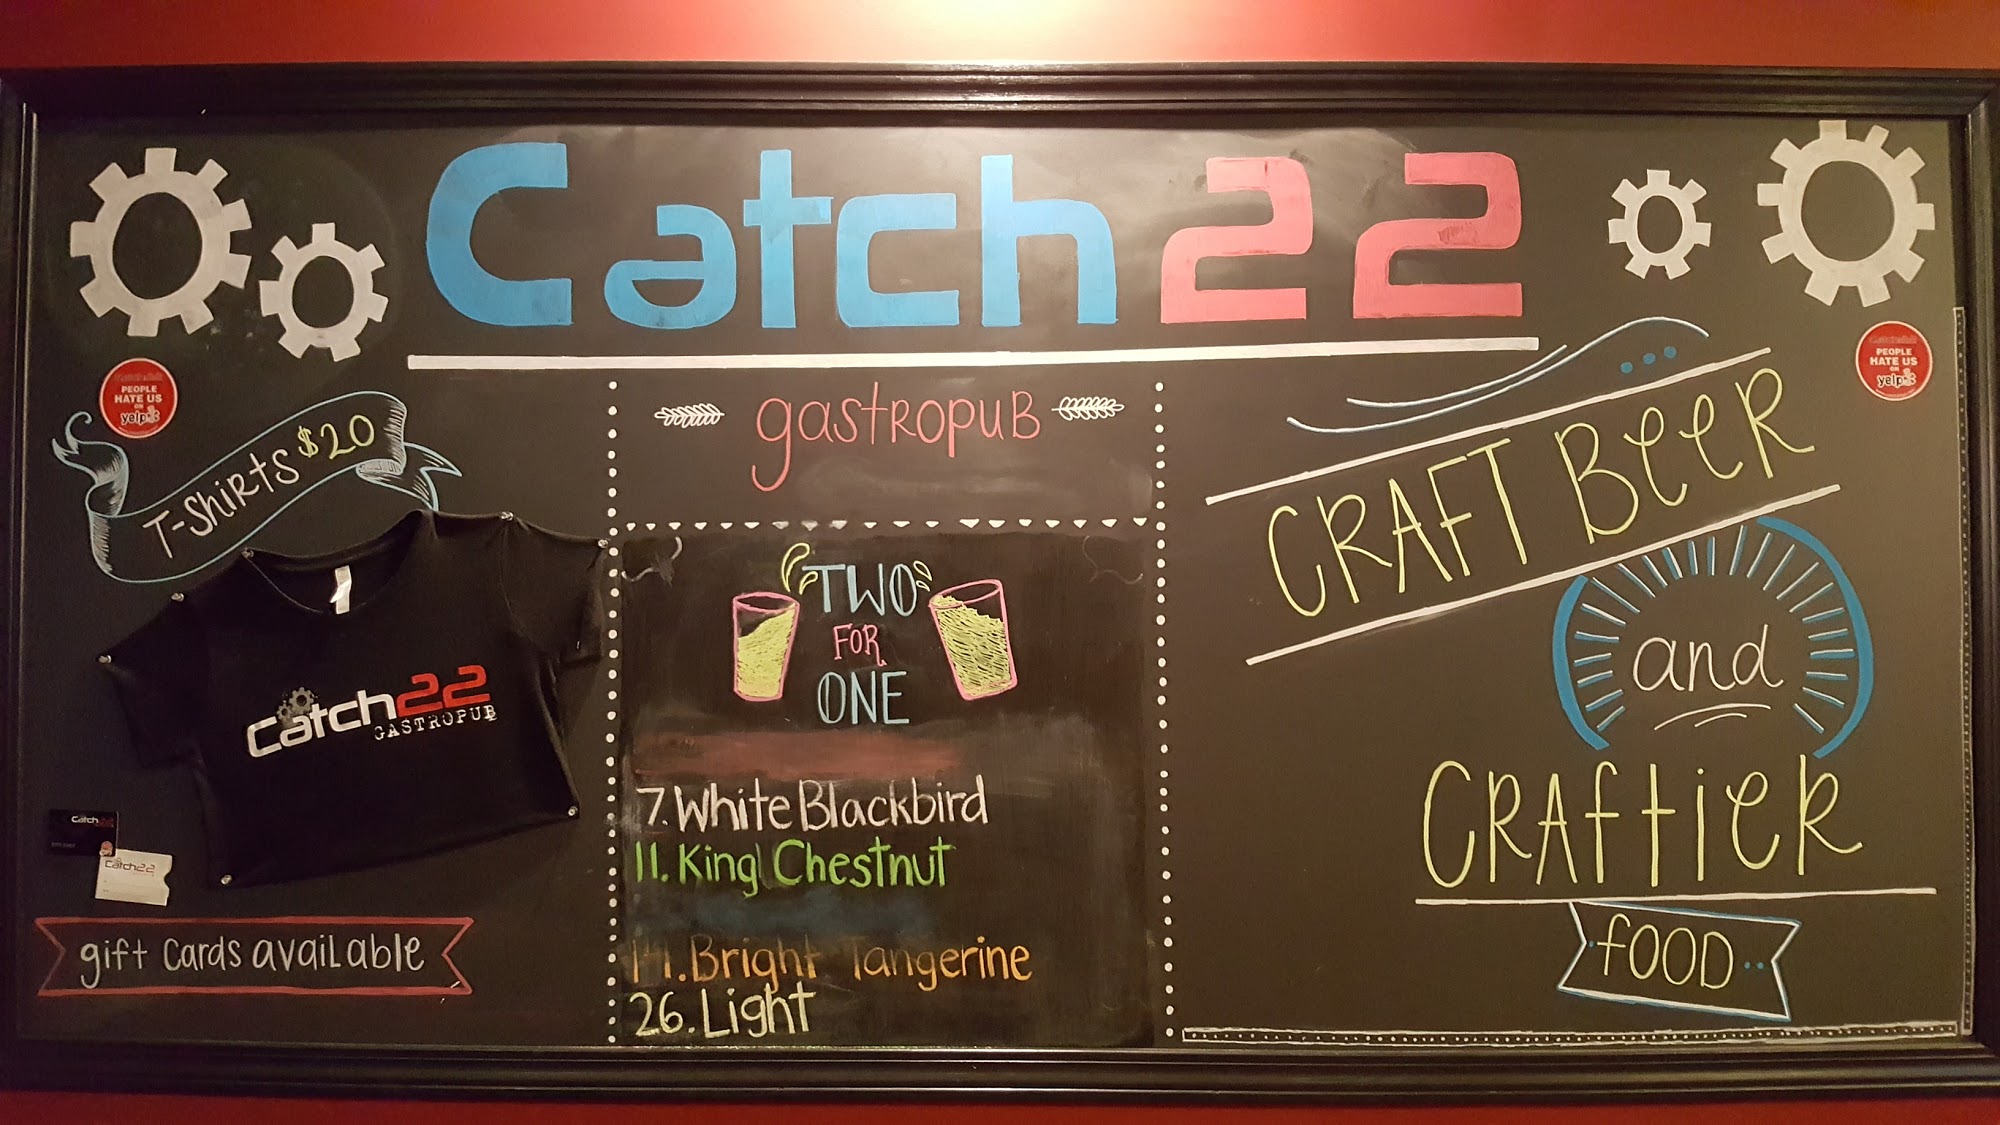 Catch22
PEOPLE
HATE US
ON
yelp
PEOPLE
HATE US
ON
yelp
T-SHIRTS $20
Catch22
GASTROPUB
Catch22
Catch22
gift cards available
gastropub
TWO
FOR
ONE
7. White Blackbird
11. King Chestnut
14. Bright Tangerine
26. Light
CRAFT BEER
and
CRAFTIER
FOOD